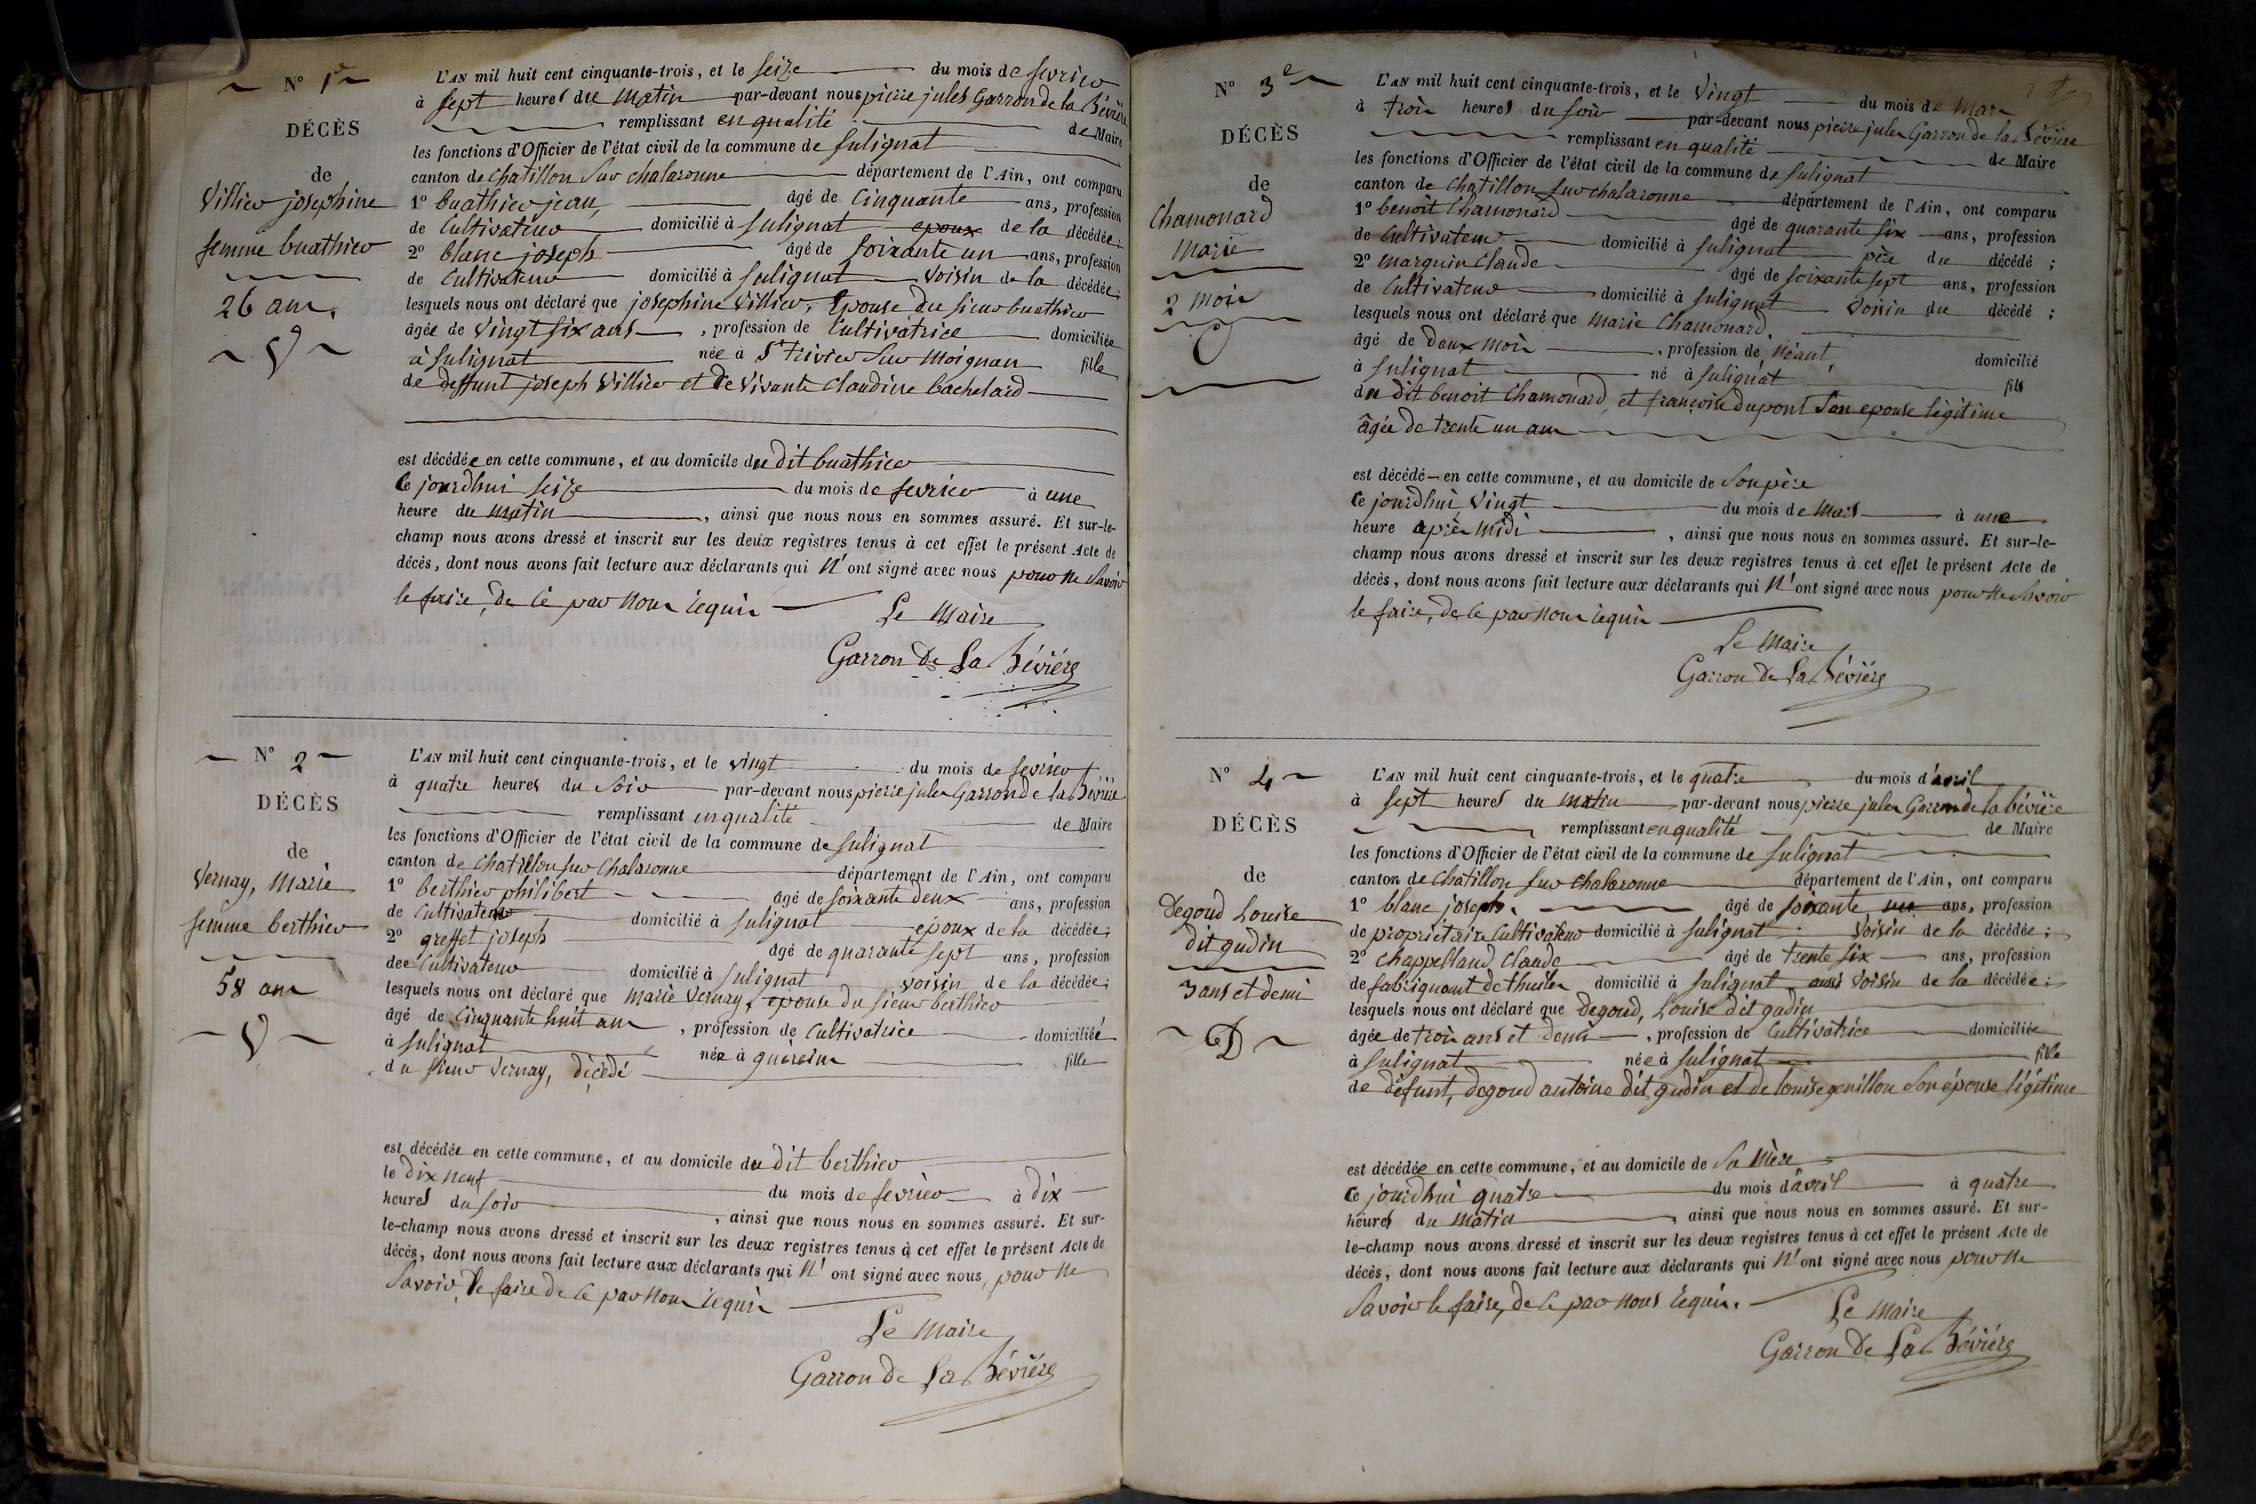 N° 1er
DÉCÈS
de
Villier josephine
femme buathier
26 ans.
L'AN mil huit cent cinquante-trois, et le seize du mois de fevrier
à sept heures du matin par-devant nous pierre jules Garron de la Bévière
remplissant en qualité de Maire
les fonctions d'Officier de l'état civil de la commune de sulignat
canton de chatillon sur chalaronne département de l'Ain, ont comparu
1° buathier jean, âgé de cinquante ans, profession
de cultivateur domicilié à sulignat epoux de la décédée;
2° blanc joseph âgé de soixante un ans, profession
de cultivateur domicilié à sulignat voisin de la décédée;
lesquels nous ont déclaré que josephine villier, Epouse du sieur buathier
âgée de vingt six ans, profession de cultivatrice domiciliée
à sulignat née à St trivier sur moignan fille
de deffunt joseph villier et de vivante claudine bachelard
est décédée en cette commune, et au domicile du dit buathier
ce jourdhui seize du mois de fevrier à une
heure du matin, ainsi que nous nous en sommes assuré. Et sur-le-
champ nous avons dressé et inscrit sur les deux registres tenus à cet effet le présent Acte de
décès, dont nous avons fait lecture aux déclarants qui n' ont signé avec nous pour ne savoir
le faire, de ce par nous requis
Le Maire
Garron De La Bévière
N° 2
DÉCÈS
de
Vernay, Marie
femme berthier
58 ans
L'AN mil huit cent cinquante-trois, et le vingt du mois de fevrier
à quatre heures du soir par-devant nous pierre jules Garron de la Bévière
remplissant en qualité de Maire
les fonctions d'Officier de l'état civil de la commune de sulignat
canton de chatillon sur chalaronne département de l'Ain, ont comparu
1° berthier philibert âgé de soixante deux ans, profession
de cultivateur domicilié à sulignat époux de la décédée;
2° greffet joseph âgé de quarante sept ans, profession
de cultivateur domicilié à sulignat voisin de la décédée;
lesquels nous ont déclaré que marie vernay, epouse du sieur berthier
âgé de cinquante huit ans, profession de cultivatrice domiciliée
à sulignat née à guéreins fille
du sieur vernay, décédé
est décédée en cette commune, et au domicile du dit berthier
le dix neuf du mois de fevrier à dix
heures du soir, ainsi que nous nous en sommes assuré. Et sur-
le-champ nous avons dressé et inscrit sur les deux registres tenus à cet effet le présent Acte de
décès, dont nous avons fait lecture aux déclarants qui n' ont signé avec nous, pour ne
savoir le faire de ce par nous requis
Le Maire
Garron De La Bévière
N° 3e
DÉCÈS
de
Chamonard
Marie
2 mois
L'AN mil huit cent cinquante-trois, et le vingt du mois de mars
à trois heures du soir par-devant nous pierre jules Garron de la Bévière
remplissant en qualité de Maire
les fonctions d'Officier de l'état civil de la commune de sulignat
canton de chatillon sur chalaronne département de l'Ain, ont comparu
1° benoit Chamonard âgé de quarante six ans, profession
de cultivateur domicilié à sulignat père du décédé;
2° marguin claude âgé de soixante sept ans, profession
de cultivateur domicilié à sulignat voisin du décédé;
lesquels nous ont déclaré que marie chamonard,
âgé de deux mois, profession de néant, domicilié
à sulignat né à sulignat fils
du dit benoit Chamonard, et françoise dupont son epouse légitime
âgée de trente un ans
est décédé en cette commune, et au domicile de son père
ce jourdhui vingt du mois de mars à une
heure après midi, ainsi que nous nous en sommes assuré. Et sur-le-
champ nous avons dressé et inscrit sur les deux registres tenus à cet effet le présent Acte de
décès, dont nous avons fait lecture aux déclarants qui n' ont signé avec nous pour ne savoir
le faire, de ce par nous requis
Le Maire
Garron De La Bévière
N° 4
DÉCÈS
de
Degoud Louise
dit gudin
3 ans et demi
L'AN mil huit cent cinquante-trois, et le quatre du mois d'avril
à sept heures du matin par-devant nous pierre jules Garron de la bévière
remplissant en qualité de Maire
les fonctions d'Officier de l'état civil de la commune de sulignat
canton de chatillon sur chalaronne département de l'Ain, ont comparu
1° blanc joseph. âgé de soixante un ans, profession
de proprietaire cultivateur domicilié à sulignat voisin de la décédée;
2° chappelland claude âgé de trente six ans, profession
de fabriquant de thuiles domicilié à sulignat aussi voisin de la décédée;
lesquels nous ont déclaré que Degoud, Louise dit gudin
âgée de trois ans et demi, profession de cultivatrice domiciliée
à sulignat née à sulignat fille
de défunt, degoud antoine dit gudin et de louise genillon son épouse légitime
est décédée en cette commune, et au domicile de sa mère
ce jourdhui quatre du mois d'avril à quatre
heures du matin, ainsi que nous nous en sommes assuré. Et sur-
le-champ nous avons dressé et inscrit sur les deux registres tenus à cet effet le présent Acte de
décès, dont nous avons fait lecture aux déclarants qui n' ont signé avec nous pour ne
savoir le faire, de ce par nous requis.
Le Maire
Garron De La Bévière